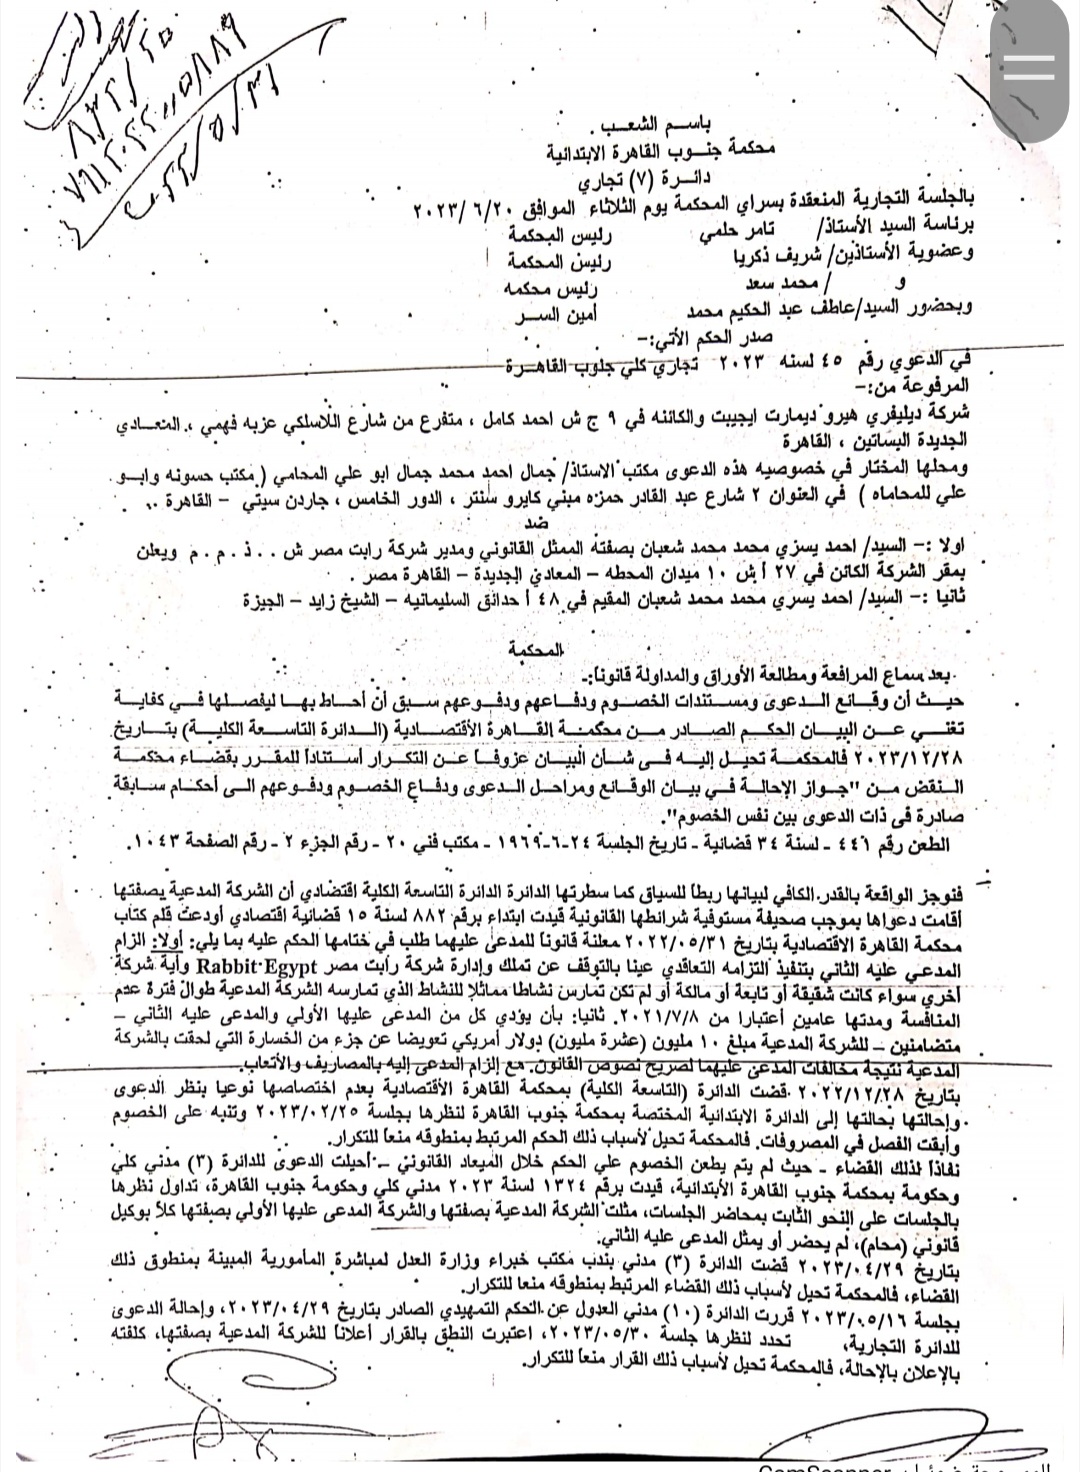 باسم الشعب
محكمة جنوب القاهرة الابتدائية
دائرة (٧) تجاري
بالجلسة التجارية المنعقدة بسراي المحكمة يوم الثلاثاء الموافق ٢٠٢٣/٦/٢٠
برئاسة السيد الأستاذ/ تامر حلمي رئيس المحكمة
وعضوية الأستاذين/ شريف ذكريا رئيس المحكمة
و / محمد سعد رئيس محكمه
وبحضور السيد/عاطف عبد الحكيم محمد أمين السر
صدر الحكم الأتي:-
في الدعوي رقم ٤٥ لسنه ٢٠٢٣ تجاري كلي جنوب القاهرة
المرفوعة من:-
شركة ديليفري هيرو ديمارت ايجيبت والكائنه في ٩ ج ش احمد كامل ، متفرع من شارع اللاسلكي عزبه فهمي ، المعادي
الجديدة البساتين ، القاهرة
ومحلها المختار في خصوصيه هذه الدعوى مكتب الاستاذ/ جمال احمد محمد جمال ابو علي المحامي ( مكتب حسونه وابو
علي للمحاماه ) في العنوان ٢ شارع عبد القادر حمزه مبني كايرو سنتر ، الدور الخامس ، جاردن سيتي - القاهرة
ضد
اولا :- السيد/ احمد يسري محمد محمد شعبان بصفته الممثل القانوني ومدير شركة رابت مصر ش . ذ . م . م ويعلن
بمقر الشركة الكائن في ٢٧ أ ش ١٠ ميدان المحطه - المعادي الجديدة - القاهرة مصر .
ثانيا :- السيد/ احمد يسري محمد محمد شعبان المقيم في ٤٨ أ حدائق السليمانيه - الشيخ زايد - الجيزة
المحكمة
بعد سماع المرافعة ومطالعة الأوراق والمداولة قانوناً:-
حيث أن وقائع الدعوى ومستندات الخصوم ودفاعهم ودفوعهم سبق أن أحاط بها ليفصلها في كفاية
تغني عن البيان الحكم الصادر من محكمة القاهرة الأقتصادية (الدائرة التاسعة الكلية) بتاريخ
٢٠٢٣/١٢/٢٨ فالمحكمة تحيل إليه فى شأن البيان عزوفاً عن التكرار أستناداً للمقرر بقضاء محكمة
النقض من "جواز الإحالة في بيان الوقائع ومراحل الدعوى ودفاع الخصوم ودفوعهم الى أحكام سابقة
صادرة فى ذات الدعوى بين نفس الخصوم".
الطعن رقم ٤٤٦ - لسنة ٣٤ قضائية - تاريخ الجلسة ٢٤-٦-١٩٦٩ - مكتب فني ٢٠ - رقم الجزء ٢ - رقم الصفحة ١٠٤٣.
فنوجز الواقعة بالقدر الكافي لبيانها ربطاً للسياق كما سطرتها الدائرة الدائرة التاسعة الكلية اقتصادي أن الشركة المدعية بصفتها
أقامت دعواها بموجب صحيفة مستوفية شرائطها القانونية قيدت ابتداء برقم ٨٨٢ لسنة ١٥ قضائية اقتصادي أودعت قلم كتاب
محكمة القاهرة الاقتصادية بتاريخ ٢٠٢٢/٠٥/٣١ معلنة قانوناً للمدعى عليهما طلب في ختامها الحكم عليه بما يلي: أولا: الزام
المدعي عليه الثاني بتنفيذ التزامه التعاقدي عينا بالتوقف عن تملك وإدارة شركة رأبت مصر Rabbit Egypt وأية شركة
أخري سواء كانت شقيقة أو تابعة أو مالكة أو لم تكن تمارس نشاطا مماثلا للنشاط الذي تمارسه الشركة المدعية طوال فترة عدم
المنافسة ومدتها عامين أعتبارا من ٢٠٢١/٧/٨. ثانيا: بأن يؤدي كل من المدعى عليها الأولي والمدعى عليه الثاني -
متضامنين - للشركة المدعية مبلغ ١٠ مليون (عشرة مليون) دولار أمريكي تعويضا عن جزء من الخسارة التي لحقت بالشركة
المدعية نتيجة مخالفات المدعى عليهما لصريح نصوص القانون. مع إلزام المدعى إليه بالمصاريف والأتعاب.
بتاريخ ٢٠٢٢/١٢/٢٨ قضت الدائرة (التاسعة الكلية) بمحكمة القاهرة الأقتصادية بعدم اختصاصها نوعيا بنظر الدعوى
وإحالتها بحالتها إلى الدائرة الابتدائية المختصة بمحكمة جنوب القاهرة لنظرها بجلسة ٢٠٢٣/٠٢/٢٥ وتنبه على الخصوم
وأبقت الفصل في المصروفات. فالمحكمة تحيل لأسباب ذلك الحكم المرتبط بمنطوقه منعاً للتكرار.
نفاذاً لذلك القضاء - حيث لم يتم يطعن الخصوم علي الحكم خلال الميعاد القانوني - أحيلت الدعوى للدائرة (٣) مدني كلي
وحكومة بمحكمة جنوب القاهرة الأبتدائية، قيدت برقم ١٣٢٤ لسنة ٢٠٢٣ مدني كلي وحكومة جنوب القاهرة، تداول نظرها
بالجلسات على النحو الثابت بمحاضر الجلسات، مثلت الشركة المدعية بصفتها والشركة المدعى عليها الأولي بصفتها كلاً بوكيل
قانوني (محام)، لم يحضر أو يمثل المدعى عليه الثاني.
بتاريخ ٢٠٢٣/٠٤/٢٩ قضت الدائرة (٣) مدني بندب مكتب خبراء وزارة العدل لمباشرة المأمورية المبينة بمنطوق ذلك
القضاء، فالمحكمة تحيل لأسباب ذلك القضاء المرتبط بمنطوقه منعا للتكرار.
بجلسة ٢٠٢٣/٠٥/١٦ قررت الدائرة (١٠) مدني العدول عن الحكم التمهيدي الصادر بتاريخ ٢٠٢٣/٠٤/٢٩، وإحالة الدعوى
للدائرة التجارية، تحدد لنظرها جلسة ٢٠٢٣/٠٥/٣٠، اعتبرت النطق بالقرار أعلاناً للشركة المدعية بصفتها، كلفته
بالإعلان بالإحالة، فالمحكمة تحيل لأسباب ذلك القرار منعاً للتكرار.